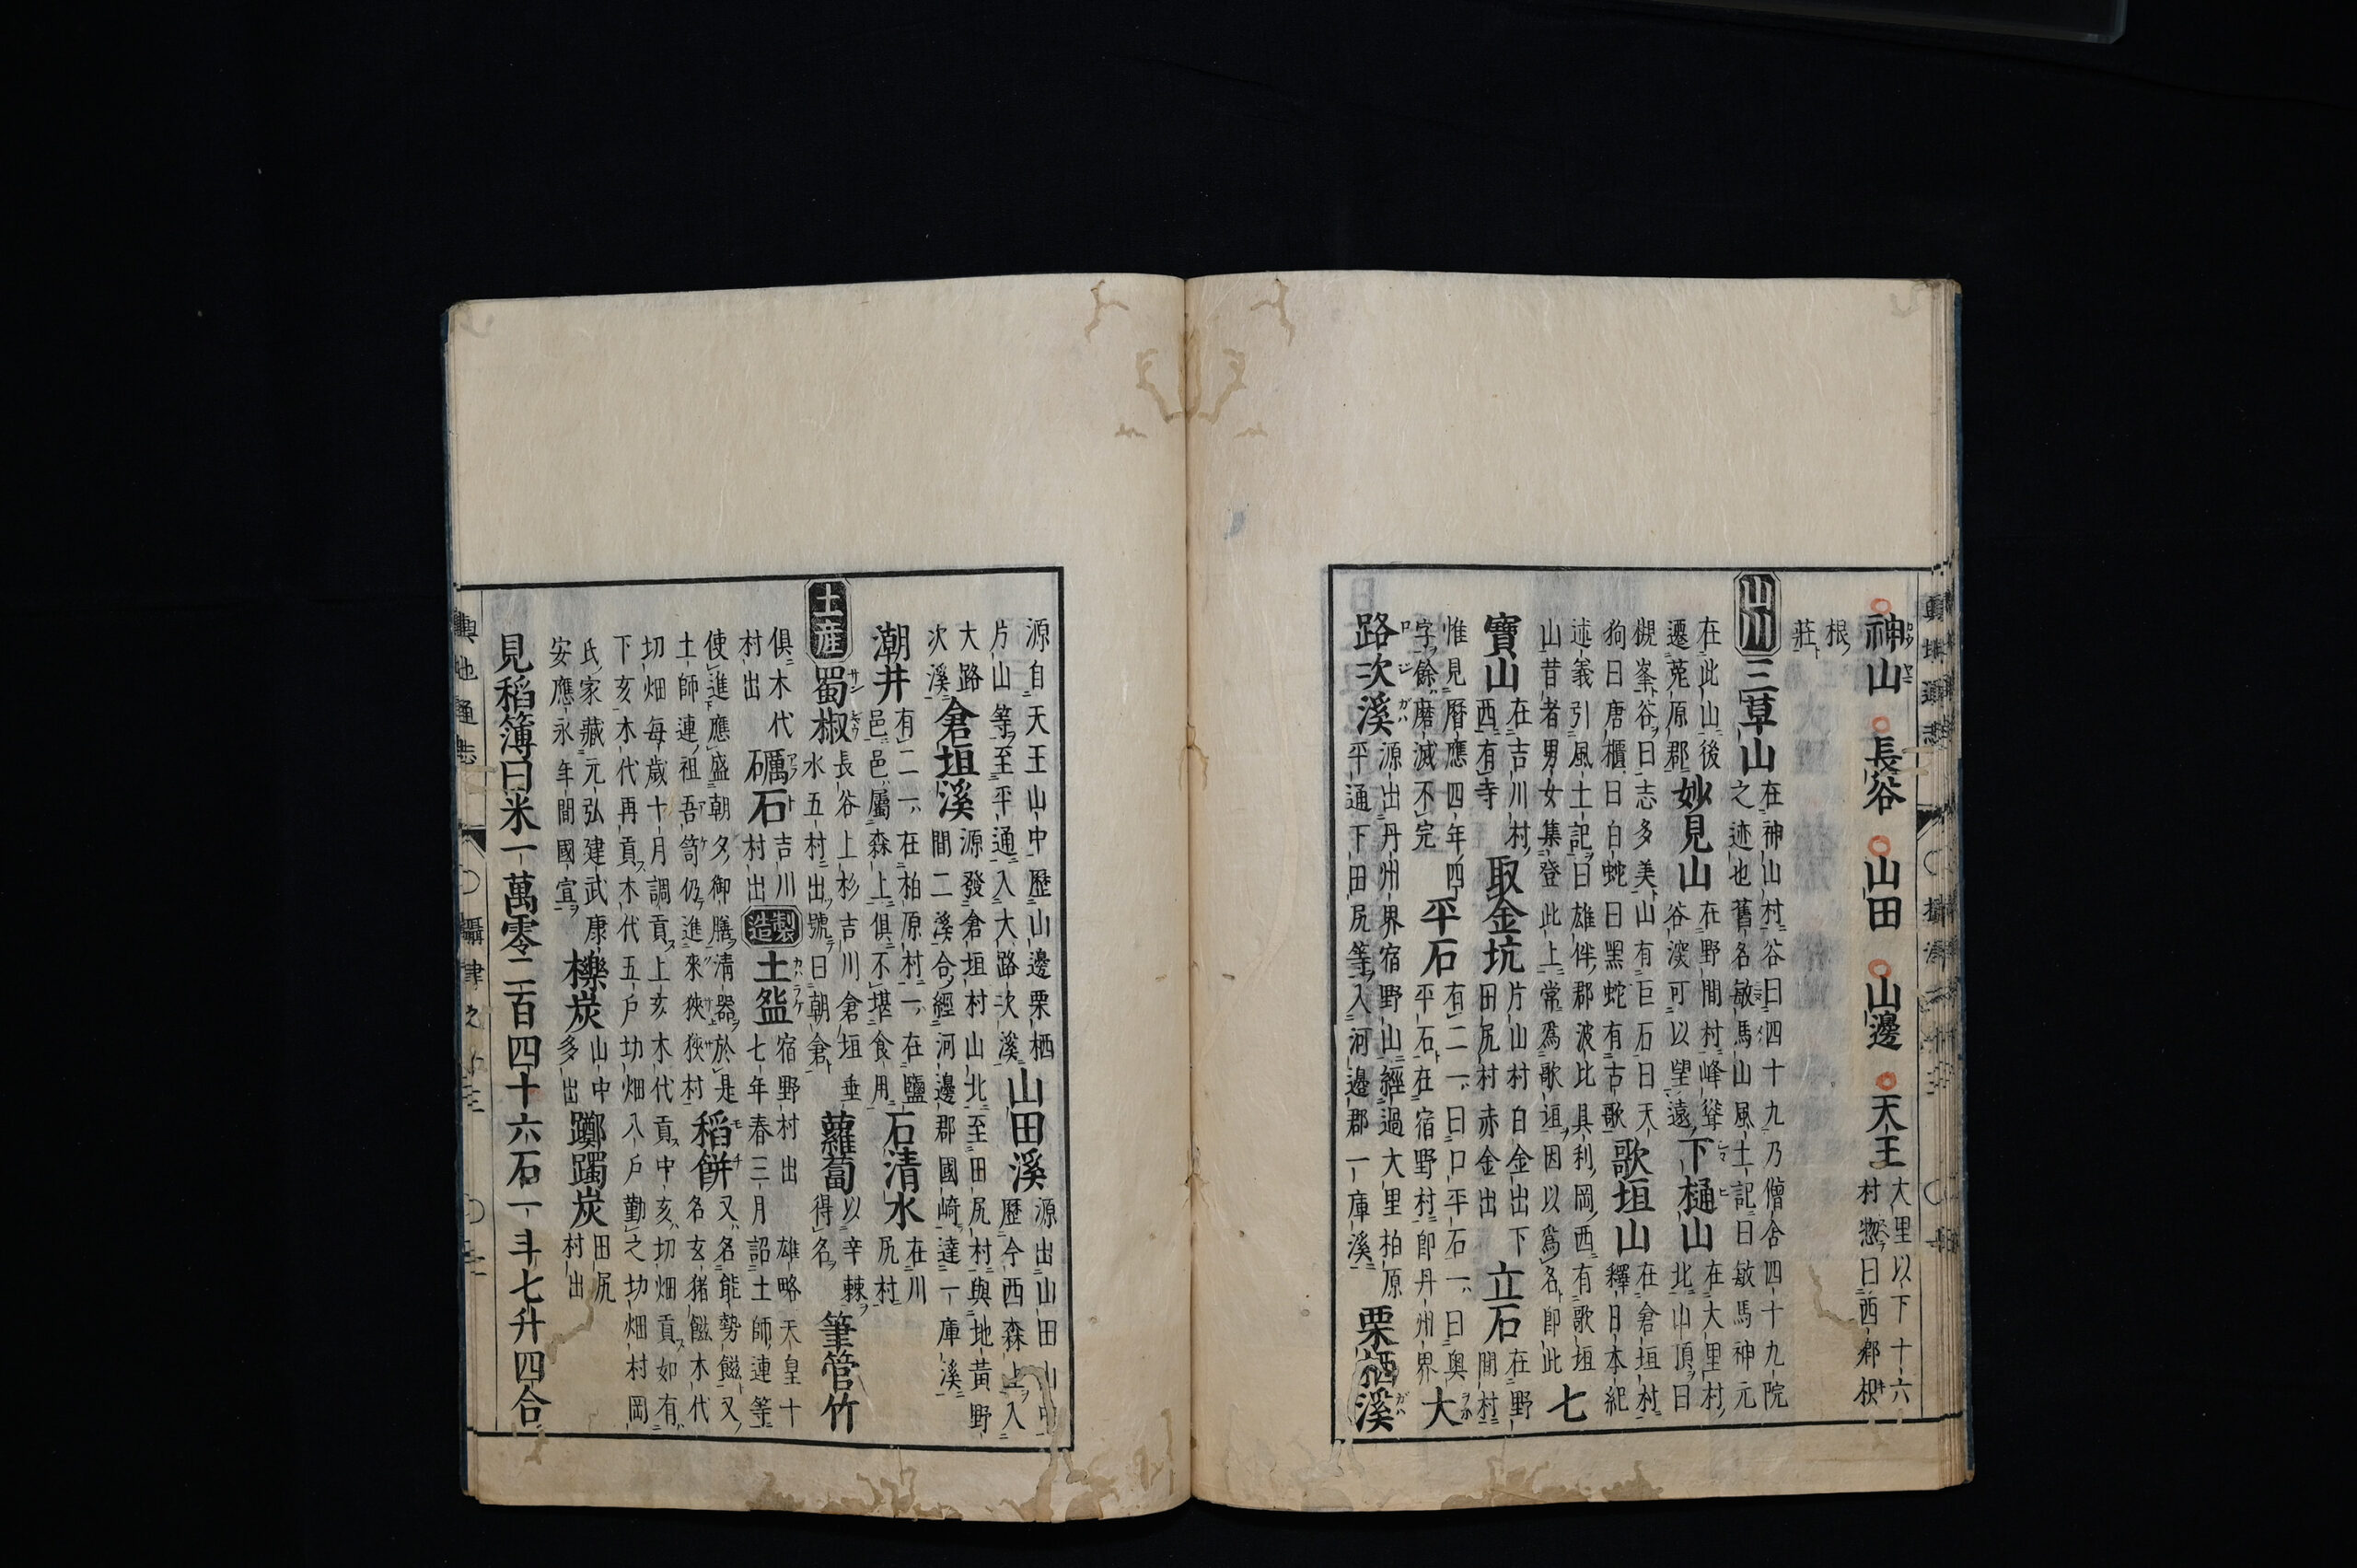 神山 長谷 山田 山邊 天王 大里以下十六村惣曰西郷枳
根莊
山川 三草山 在神山村谷曰四十九乃僧舍四十九院之迹也舊名敏馬山風土記曰敏馬神元
在此山後遷菟原郡 妙見山 在野間村峰聳谷深可以望遠 下樋山 在大里村北山頂曰
槻峯谷曰志多美山有巨石曰天狗曰唐櫃曰白蛇曰黑蛇有古歌 歌垣山 在倉垣村釋日本紀
述義引風土記曰雄伴郡波比具利岡西有歌垣山昔者男女集登此上常爲歌垣因以爲名即此 七
寶山 在吉川村西有寺 取金坑 片山村白金出下田尻村赤金出 立石 在野間村
惟見曆應四年四字餘磨滅不完 平石 有二一曰口平石一曰奥平石在宿野村即丹州界 大
路次溪 源出丹州界宿野山經過大里柏原平通下田尻等入河邊郡一庫溪 栗栖溪
源自天王山中歷山邊栗栖片山等至平通入大路次溪 山田溪 源出山田山中歷今西森上入
大路次溪 倉垣溪 源發倉垣村山北至田尻村與地黃野間二溪合經河邊郡國崎達一庫溪
潮井 有二一在柏原村一在鹽邑邑屬森上俱不堪食用 石清水 在川尻村
土產 蜀椒 長谷上杉吉川倉垂水五村出號曰朝倉 蘿蔔 以辛棘得名 筆管竹
俱木代村出 礪石 吉川村出 製造 土盌 宿野村出 雄略天皇十七年春三月詔土師連等
使進應盛朝夕御膳清器於是土師連祖吾笥仍進來狹狹村 稻餅 又名能勢餻又名玄猪餻木代
切畑每歲十月調貢上亥木代貢中亥切畑貢如有下亥木代再貢木代五戶切畑八戶勤之切畑村岡
氏家藏元弘建武康安應永年間國宣 櫟炭 山中多出 躑躅炭 田尻村出
見稻簿曰米一萬零二百四十六石一斗七升四合
輿地通志 攝津之